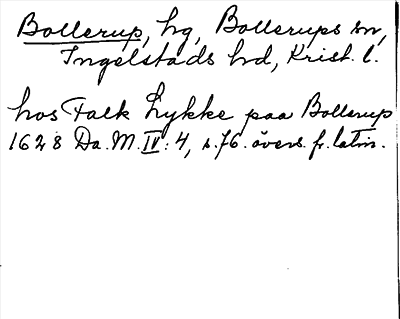 Bollerup, hg, Bollerups sn,
Ingelstads hd, Krist. l.
hos Falk Lykke paa Bollerup
1628 Da. M. IV: 4, s. 76. övers. fr. latin.